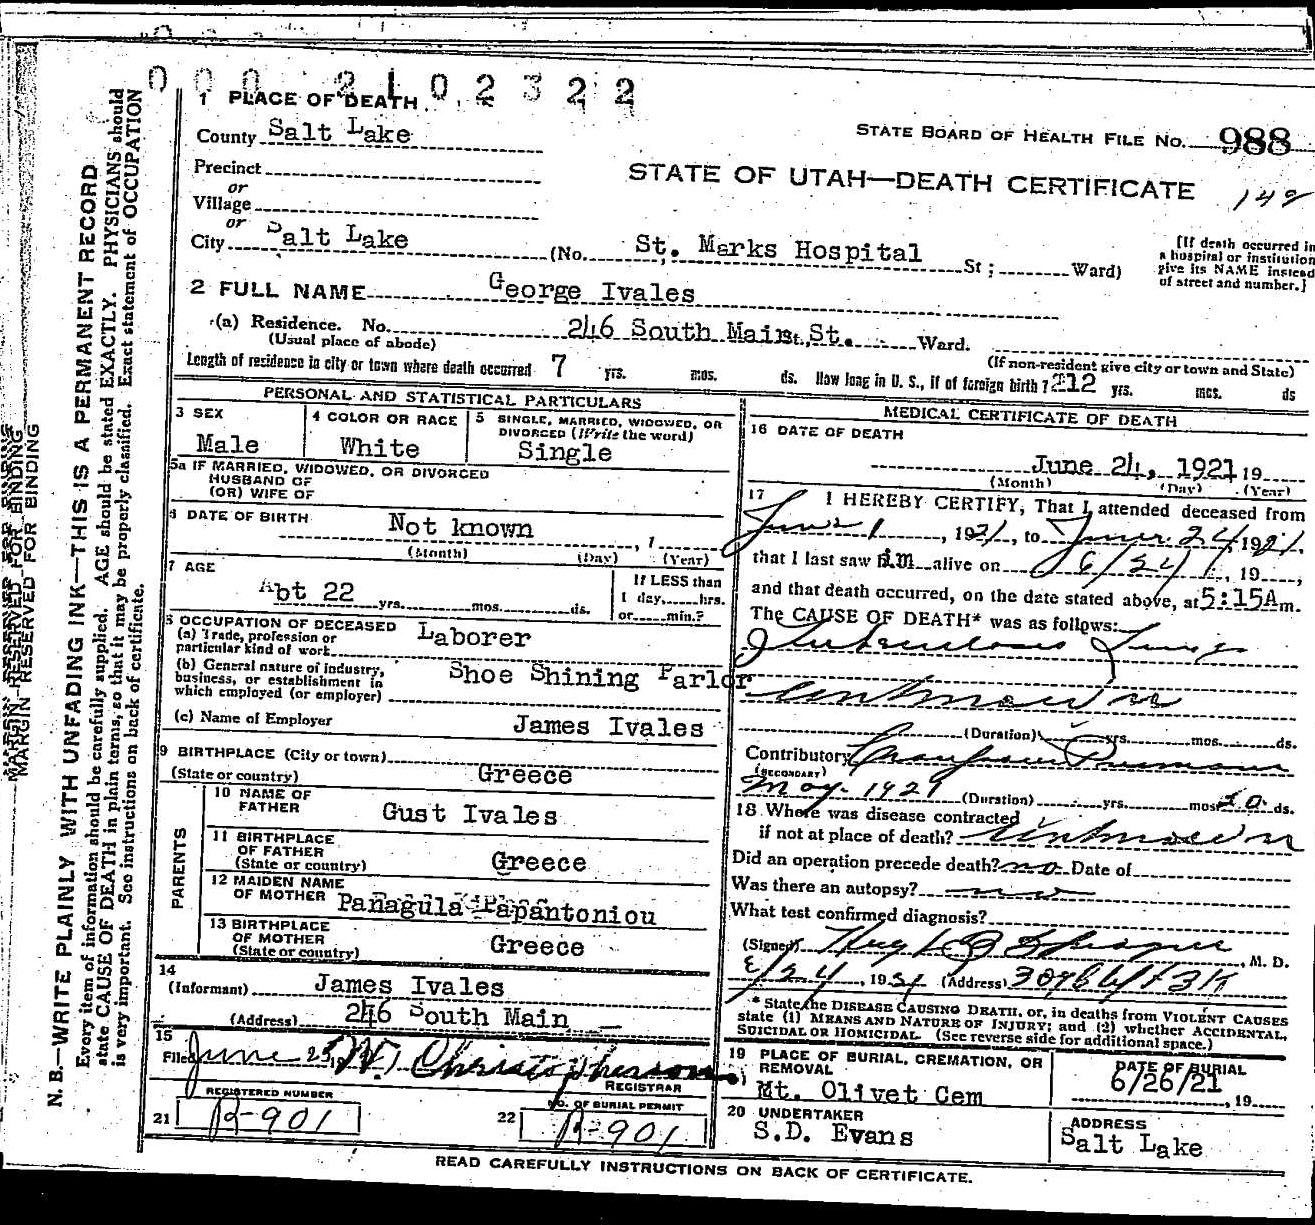 0 0 0 2 1 0 2 3 2 2
1 PLACE OF DEATH
STATE BOARD OF HEALTH FILE No. 988
County Salt Lake
Precinct
or
Village
or
City Salt Lake
STATE OF UTAH—DEATH CERTIFICATE 149
(No. St. Marks Hospital St; Ward)
[If death occurred in
a hospital or institution
give its NAME instead
of street and number.]
2 FULL NAME George Ivales
(a) Residence. No. 246 South Main St. St., Ward.
(Usual place of abode)
(If non-resident give city or town and State)
Length of residence in city or town where death occurred 7 yrs. mos. ds. How long in U. S., if of foreign birth? 12 yrs. mos. ds
PERSONAL AND STATISTICAL PARTICULARS
3 SEX
Male
4 COLOR OR RACE
White
5 SINGLE, MARRIED, WIDOWED, OR
DIVORCED (Write the word)
Single
5a IF MARRIED, WIDOWED, OR DIVORCED
HUSBAND OF
(OR) WIFE OF
6 DATE OF BIRTH Not known , 1
(Month) (Day) (Year)
7 AGE
Abt 22 yrs. mos. ds.
If LESS than
1 day, hrs.
or min.?
8 OCCUPATION OF DECEASED
(a) Trade, profession or
particular kind of work Laborer
(b) General nature of industry,
business, or establishment in
which employed (or employer) Shoe Shining Parlor
(c) Name of Employer James Ivales
9 BIRTHPLACE (City or town)
(State or country) Greece
PARENTS
10 NAME OF
FATHER Gust Ivales
11 BIRTHPLACE
OF FATHER
(State or country) Greece
12 MAIDEN NAME
OF MOTHER Panagula Papantoniou
13 BIRTHPLACE
OF MOTHER
(State or country) Greece
14
(Informant) James Ivales
(Address) 246 South Main
15
Filed June 25, W. Christopherson
REGISTRAR
REGISTERED NUMBER
21 R-901
NO. OF BURIAL PERMIT
22 R-901
MEDICAL CERTIFICATE OF DEATH
16 DATE OF DEATH
June 24, 1921 19
(Month) (Day) (Year)
17 I HEREBY CERTIFY, That I attended deceased from
June 1, 1921, to June 24, 1921,
that I last saw him alive on 6/24, 19,
and that death occurred, on the date stated above, at 5:15A m.
The CAUSE OF DEATH* was as follows:
Tuberculosis Lungs
unknown
(Duration) yrs. mos. ds.
Contributory
(SECONDARY)
May 1921 (Duration) yrs. mos. ds.
18 Where was disease contracted
if not at place of death? unknown
Did an operation precede death? no Date of
Was there an autopsy? no
What test confirmed diagnosis?
(Signed) Hugh B , M. D.
6/24, 1921 (Address)
* State the DISEASE CAUSING DEATH, or, in deaths from VIOLENT CAUSES
state (1) MEANS AND NATURE OF INJURY; and (2) whether ACCIDENTAL,
SUICIDAL OR HOMICIDAL. (See reverse side for additional space.)
19 PLACE OF BURIAL, CREMATION, OR
REMOVAL
Mt. Olivet Cem
DATE OF BURIAL
6/26/21
, 19
20 UNDERTAKER
S.D. Evans
ADDRESS
Salt Lake
READ CAREFULLY INSTRUCTIONS ON BACK OF CERTIFICATE.
MARGIN RESERVED FOR BINDING
N. B.—WRITE PLAINLY WITH UNFADING INK—THIS IS A PERMANENT RECORD
Every item of information should be carefully supplied. AGE should be stated EXACTLY. PHYSICIANS should
state CAUSE OF DEATH in plain terms, so that it may be properly classified. Exact statement of OCCUPATION
is very important. See instructions on back of certificate.